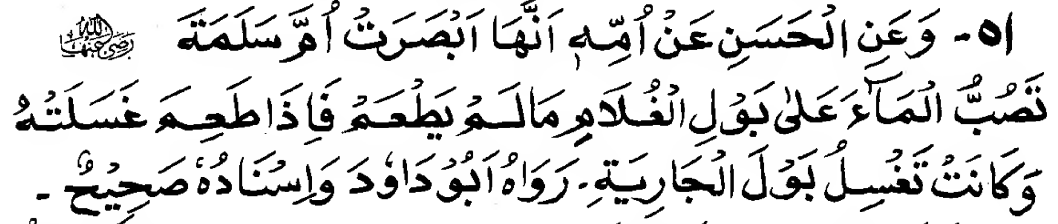 ۵۱- وَعَنِ الْحَسَنِ عَنْ اُمِّهٖ اَنَّهَا اَبْصَرَتْ اُمَّ سَلَمَةَ رضی اللہ عنہا
تَصُبُّ الْمَآءَ عَلٰی بَوْلِ الْغُلَامِ مَالَمْ يَطْعَمْ فَاِذَا طَعِمَ غَسَلَتْهُ
وَكَانَتْ تَغْسِلُ بَوْلَ الْجَارِيَةِ۔ رَوَاهُ اَبُوْ دَاوٗدَ وَاِسْنَادُهٗ صَحِيْحٌ ۔